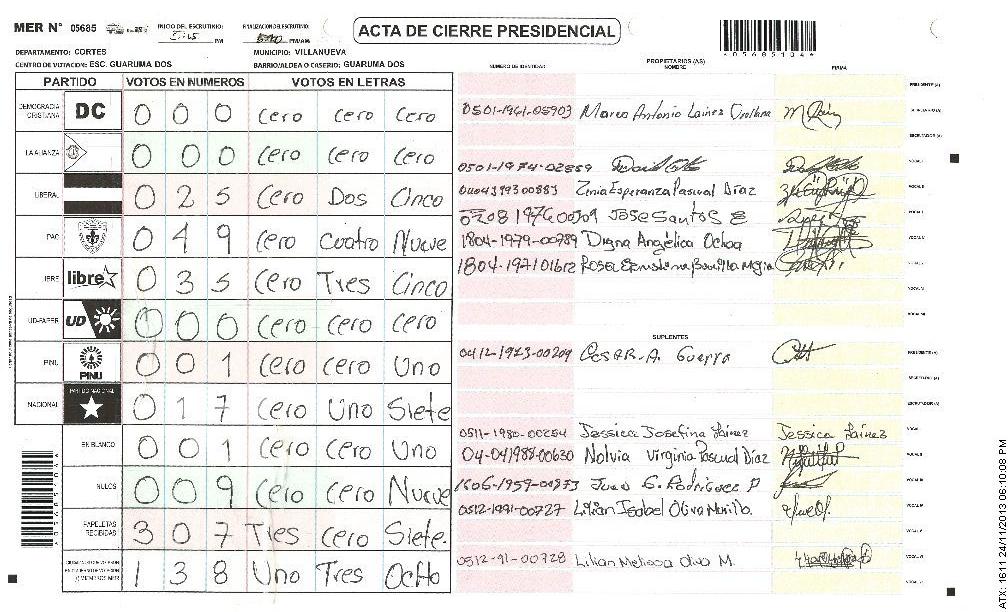 MER N° 05685 INICIO DEL ESCRUTINIO: PM FINALIZACION DEL ESCRUTINIO: PM/AM
ACTA DE CIERRE PRESIDENCIAL
*05685104*
DEPARTAMENTO: CORTES MUNICIPIO: VILLANUEVA
CENTRO DE VOTACION: ESC. GUARUMA DOS BARRIO/ALDEA O CASERIO: GUARUMA DOS
PARTIDO VOTOS EN NUMEROS VOTOS EN LETRAS
DEMOCRACIA CRISTIANA DC 0 0 0 Cero Cero Cero
LA ALIANZA 0 0 0 Cero Cero Cero
LIBERAL 0 2 5 Cero Dos Cinco
PAC 0 4 9 Cero Cuatro Nueve
LIBRE libre 0 3 5 Cero Tres Cinco
UD-FAPER UD 0 0 0 Cero Cero Cero
PINU PINU 0 0 1 Cero Cero Uno
NACIONAL PARTIDO NACIONAL 0 1 7 Cero Uno Siete
EN BLANCO 0 0 1 Cero Cero Uno
NULOS 0 0 9 Cero Cero Nueve
PAPELETAS RECIBIDAS 3 0 7 Tres Cero Siete.
1 3 8 Uno Tres Ocho
PROPIETARIOS (AS)
NUMERO DE IDENTIDAD NOMBRE FIRMA
PRESIDENTE (A)
0501-1961-05903 Marco Antonio Lainez Orellana SECRETARIO (A)
ESCRUTADOR (A)
0501-1974-02859 VOCAL I
0404199300883 Zenia Esperanza Pascual Diaz VOCAL II
0208197600309 Jose Santos E
1804-1979-00789 Digna Angélica Ochoa
1804-197101612
SUPLENTES
0412-1973-00209 Oscar. A. Guerra PRESIDENTE (A)
SECRETARIO (A)
ESCRUTADOR (A)
0511-1980-00254 Jessica Josefina Lainez Jessica Lainez VOCAL I
04-041988-00630 Nolvia Virginia Pascual Diaz VOCAL II
1606-1959-00273 Juan G. Rodriguez P VOCAL III
0512-1991-00727 Lilian Isabel Oliva Murillo.
0512-91-00728 Lilian Melissa Oliva M.
ATX: 1611 24/11/2013 06:10:08 PM